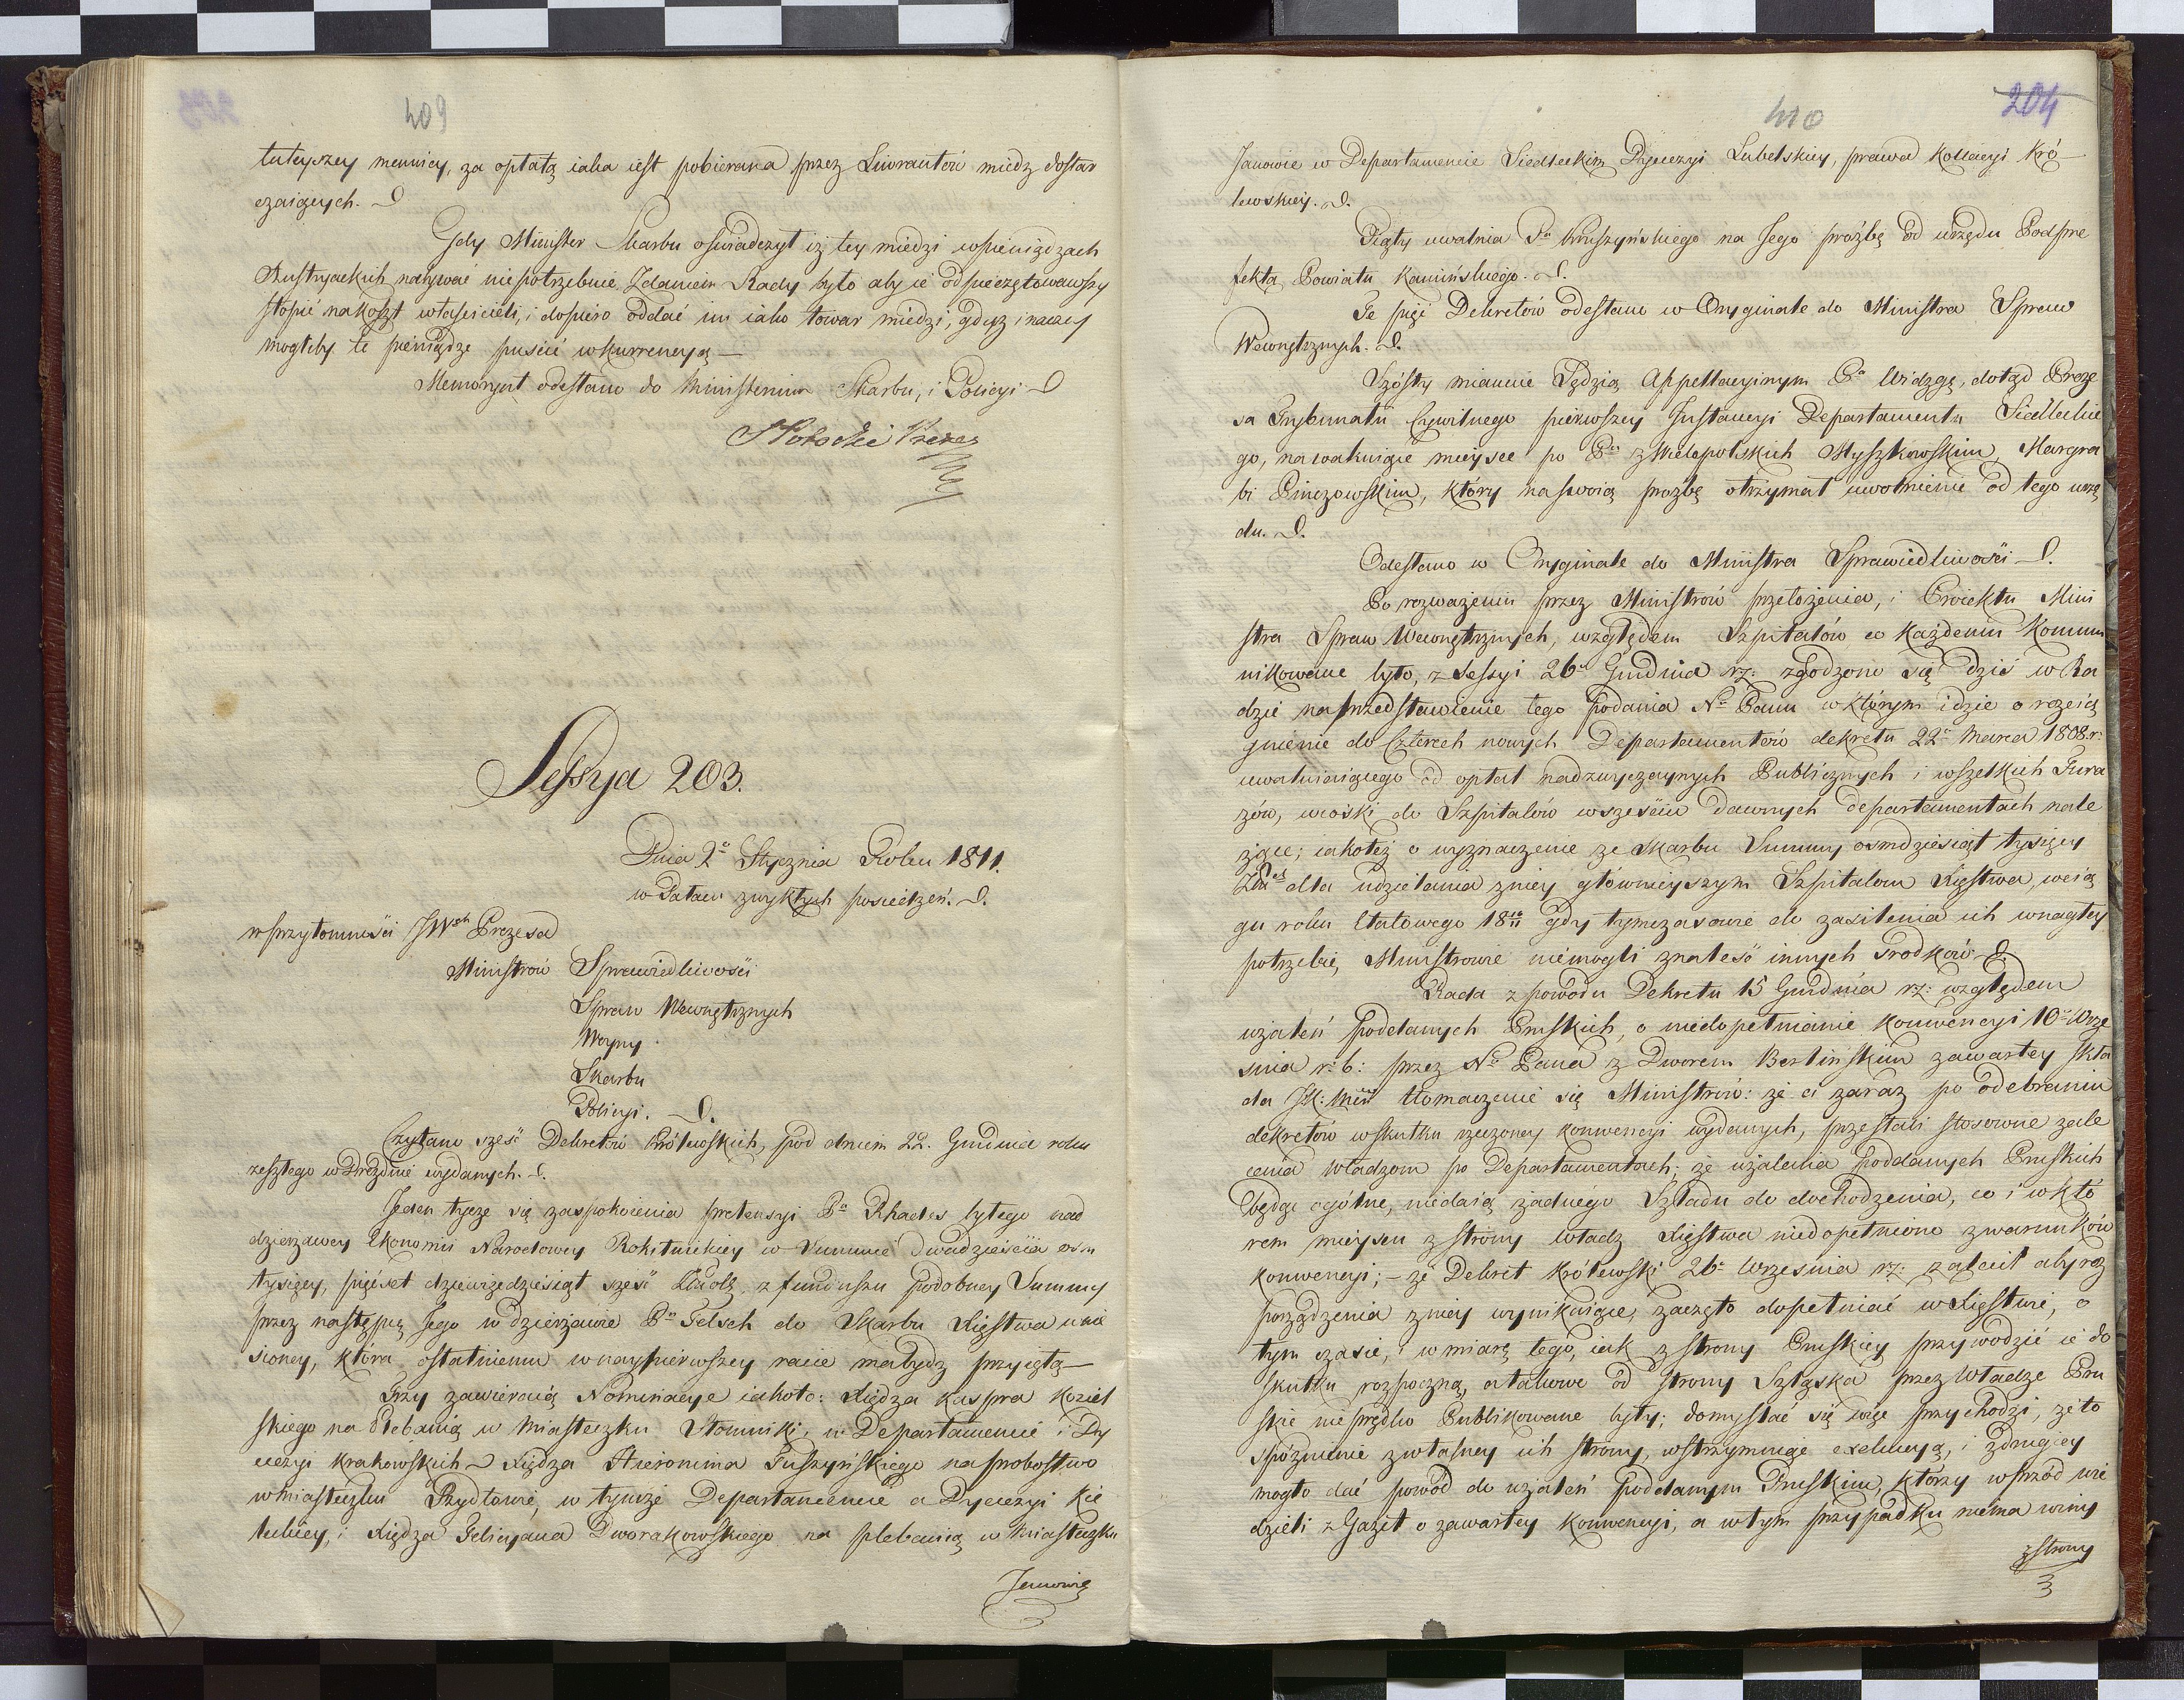 409
tuteyszey mennicy, za opłatą iaka iest pobierana przez Liwrantów miedz dostar
czaiących.
Gdy Minister Skarbu oświadczył iż tey miedzi w pieniądzach
Austryackich nabywać niepotrzebuie, Zdaniem Rady było aby ie odpieczętowawszy
stopić na koszt właścicieli, i dopiero oddać im iako towar miedzi, gdyż inaczey
mogliby te pieniądze puścić w kurrencyą —
Memoryał odesłano do Ministerium Skarbu, i Policyi
S Potocki Prezes
Sessya 203.
Dnia 2o Stycznia Roku 1811.
w Pałacu zwykłych posiedzeń.
w przytomności JWch Prezesa
Ministrów Sprawiedliwości
Spraw Wewnętrznych
Woyny
Skarbu
Policyi.
Czytano sześć Dekretów Królewskich, pod dniem 22. Grudnia roku
zeszłego w Dreźnie wydanych.
Jeden tycze się zaspokoienia pretensyi Pa Rhades byłego nad
dzierzawcy Ekonomii Narodowey Rokitnickiey w Summie dwadzieścia osm
tysięcy, pięćset dziewięćdziesiąt sześć Złotch, z funduszu podobney Summy
przez następcę Jego w dzierżawie Pa Felsch do Skarbu Xięstwa unie
sioney, która ostatniemu w naypierwszey racie ma bydz przyięta —
Trzy zawieraią Nominacye iakoto: Xiędza Kaspra Koziel
skiego na Plebanią w Miasteczku Słomniki, w Departamencie i Dy
ecezyi Krakowskich — Xiędza Hieronima Tuszyńskiego na probostwo
w Miasteczku Szydłowie, w tymże Departamencie a Dyecezyi Kie
leckiey, i Xiędza Felicyana Dworakowskiego na plebanią w Miasteczku
Janowie
410
204
Janowie w Departamencie Siedleckim Dyecezyi Lubelskiey, prawa kollacyi Kró
lewskiey.
Piąty uwalnia Pa Kruszyńskiego na Jego prozbę od urzędu Podpre
fekta Powiatu Kamińskiego.
Te pięć Dekretów odesłano w Oryginale do Ministra Spraw
Wewnętrznych.
Szósty mianuie Sędzią Appellacyinym Pa Widzgę, dotąd Preze
sa Trybunału Cywilnego pierwszey Instancyi Departamentu Siedleckie
go, na wakuiące mieysce po Pu z Wielopolskich Myszkowskim, Margra
bi Pinczowskim, który na swoią prozbę otrzymał uwolnienie od tego urzę
du.
Odesłano w Oryginale do Ministra Sprawiedliwości
Po rozważeniu przez Ministrów przełożenia, i Proiektu Mini
stra Spraw Wewnętrznych, względem Szpitalów co każdemu Kommu
nikowane było, z Sessyi 26a Grudnia rz: zgodzono się dziś w Ra
dzie na przedstawienie tego podania Na Panu w którym idzie o rozcią
gnienie do Czterech nowych Departamentów dekretu 22o Marca 1808. r:
uwalniaiącego od opłat nadzwyczaynych Publicznych i wszelkich Fura
żów, wioski do Szpitalów w sześciu dawnych departamentach nale
żące; iakoteż o wyznaczenie ze Skarbu Summy ośmdziesiąt tysięcy
Złch dla udzielania z niey głównieyszym Szpitalom Xięstwa, w cią
gu roku Etatowego 18 10/11 gdy tymczasowie do zasilenia ich w nagłey
potrzebie, Ministrowie niemogli znaleść innych srodków
Rada z powodu Dekretu 15 Grudnia rz: względem
użaleń poddanych Pruskich, o niedopełnianie konwencyi 10a Wrze
snia r: b: przez Na Pana z Dworem Berlińskim zawartey skła
da JK: Mci tłomaczenie się Ministrów: że ci zaraz po odebraniu
dekretów w skutku rzeczoney konwencyi wydanych, przesłali stosowne zale
cenia Władzom po Departamentach; że użalenia poddanych Pruskich
będąc ogólne, niedaią żadnego Szladu do dochodzenia, co i w któ
rem mieyscu z strony władz Xięstwa niedopełniono z warunków
konwencyi; — że Dekret Królewski 26o Września rz: zalecił aby roz
porządzenia z niey wynikaiące, zaczęto dopełniać w Xięstwie, o
tym czasie, i w miarę tego, iak z strony Pruskiey przywodzić ie do
skutku rozpoczną, a takowe od strony Szląska przez Władze Pru
skie nie prędko Publikowane były; domyślać się więc przychodzi, że to
spóznienie z własney ich strony, wstrzymuiąc exekucyą, i z drugiey
mogło dać powód do użaleń poddanym Pruskim, którzy wprzód wie
dzieli z Gazet o zawartey konwencyi, a w tym przypadku niema winy
z strony